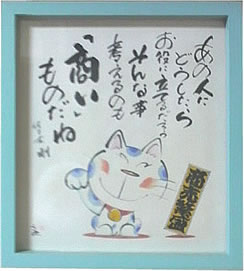 あの人に
どうしたら
お役に立てるだろう
そんな事
考えるのも
「商い」
ものだね
商売繁盛